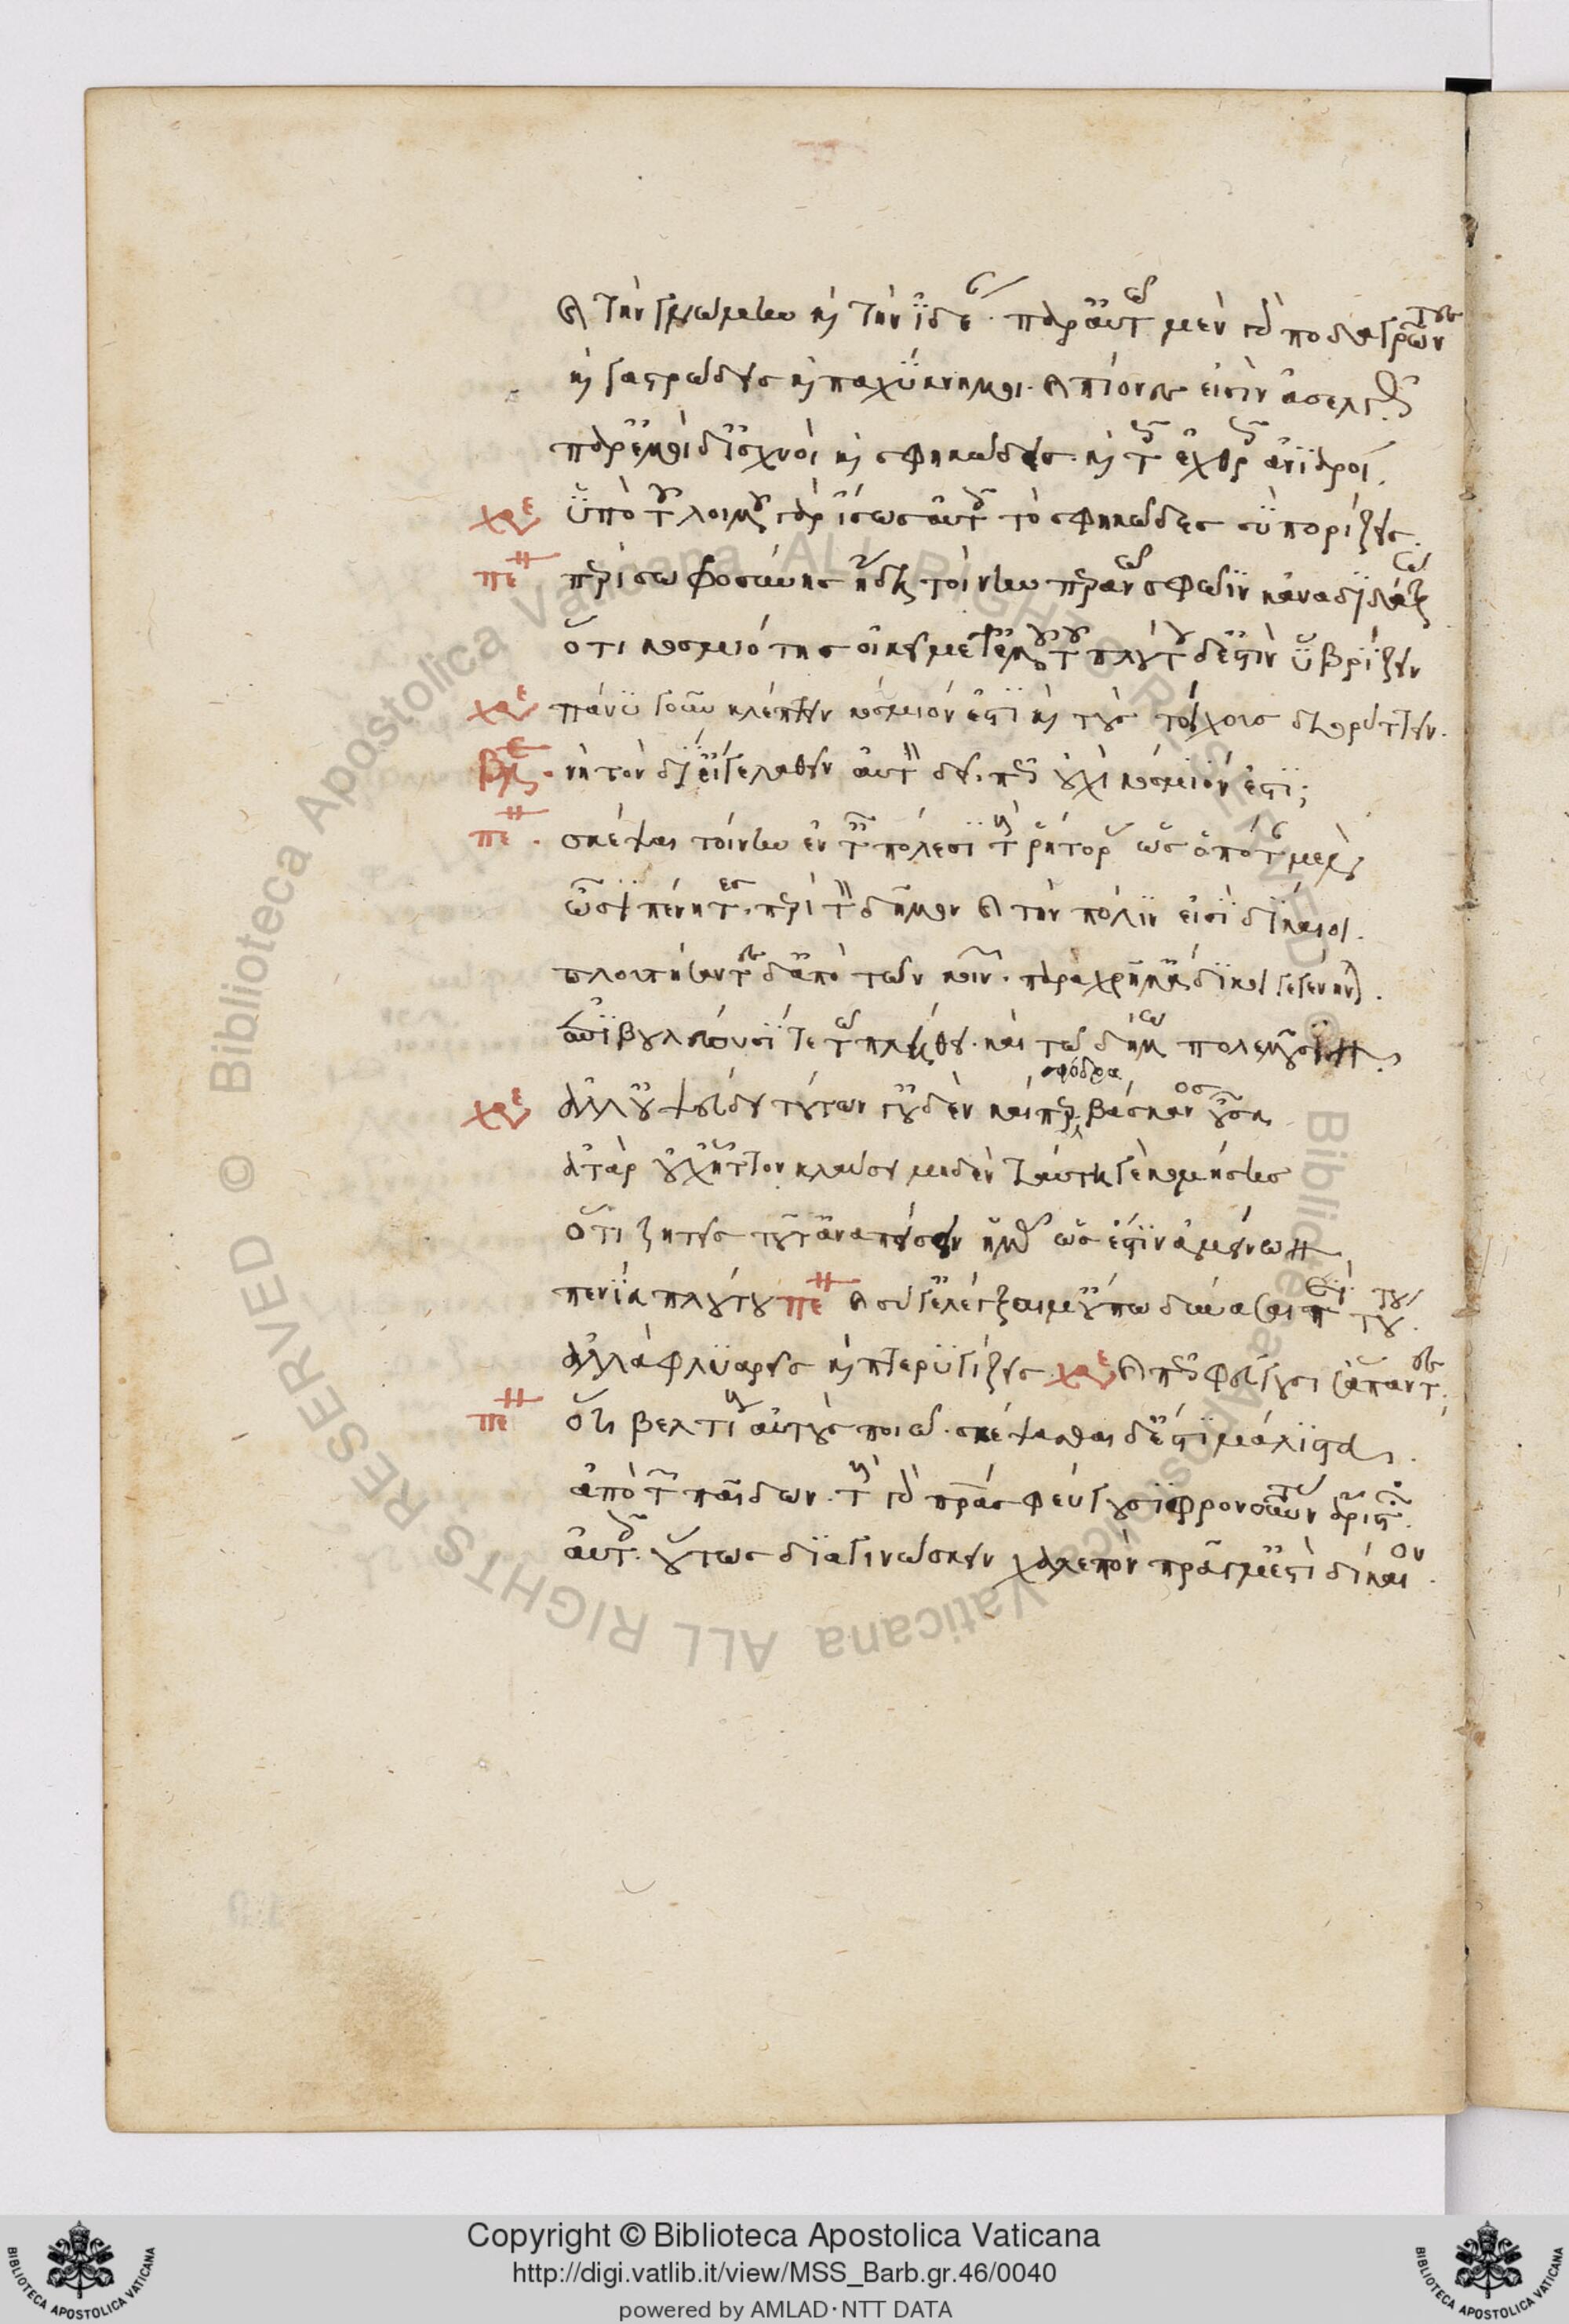 καὶ τὴν γνώμην καὶ τὴν ἰδέαν. παρ' αὐτῷ μὲν γὰρ ποδαγρῶντες
καὶ γαστρώδεις καὶ παχύκνημοι. καὶ πίονες εἰσὶν ἀσελγῶς
παρ' ἐμοὶ δ' ἰσχνοὶ καὶ σφηκώδεις. καὶ τοῖς ἐχθροῖς ἀνιαροί.
χρε ὑπὸ τοῦ λιμοῦ γὰρ ἴσως αὐτοῖς τὸ σφηκῶδες σὺ πορίζεις.
πε περὶ σωφροσύνης ἤδη τοίνυν περανῶ σφῶϊν κἀναδιδάξω
ὅτι κοσμιότης οἰκεῖ μετ' ἐμοῦ τοῦ πλούτου δ' ἐστὶν ὑβρίζειν
χρε πάνυ γοῦν κλέπτειν κόσμιόν ἐστι καὶ τοὺς τοίχους διορύττειν.
βλε. νὴ τὸν δί' εἴ γε λαθεῖν αὐτὸν δεῖ. πῶς οὐχὶ κόσμιόν ἐστι;
πε. σκέψαι τοίνυν ἐν ταῖς πόλεσι τοὺς ῥήτορας ὡς ὁπόταν μὲν
ὦσι πένητες. περὶ τὸν δῆμον καὶ τὴν πόλιν εἰσὶ δίκαιοι.
πλουτήσαντες δ' ἀπὸ τῶν κοινῶν. παραχρῆμ' ἄδικοι γεγένηνται.
ἐπιβουλεύουσί τε τῷ πλήθει. καὶ τῷ δήμῳ πολεμοῦσιν.
χρε ἀλλ' οὐ ψεύδει τούτων γ' οὐδὲν καίπερ σφόδρα βάσκανος οὖσα
ἀτὰρ οὐχ ἧττον κλαύσει μηδὲν ταύτῃ γε κομήσῃς
ὅτι ζητεῖς τοῦτ' ἀναπείσειν ἡμᾶς ὡς ἔστιν ἀμείνων
πενία πλούτου πε καὶ σύ γ' ἐλέγξαι μ' οὔπω δύνασαι περὶ τούτου.
ἀλλὰ φλυαρεῖς καὶ πτερυγίζεις χρε καὶ πῶς φεύγουσί σ' ἅπαντες;
πε ὅτι βελτίους αὐτοὺς ποιῶ. σκέψασθαι δ' ἔστι μάλιστα.
ἀπὸ τῶν παίδων. τοὺς γὰρ πατέρας φεύγουσι φρονοῦντας ἄριστα
αὐτοῖς. οὕτως διαγινώσκειν χαλεπὸν πρᾶγμ' ἐστὶ δίκαιον.
Copyright © Biblioteca Apostolica Vaticana
http://digi.vatlib.it/view/MSS_Barb.gr.46/0040
powered by AMLAD·NTT DATA